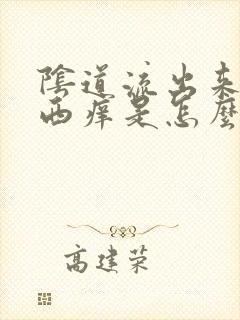 陰道流出来
西痒是怎麼
高建荣